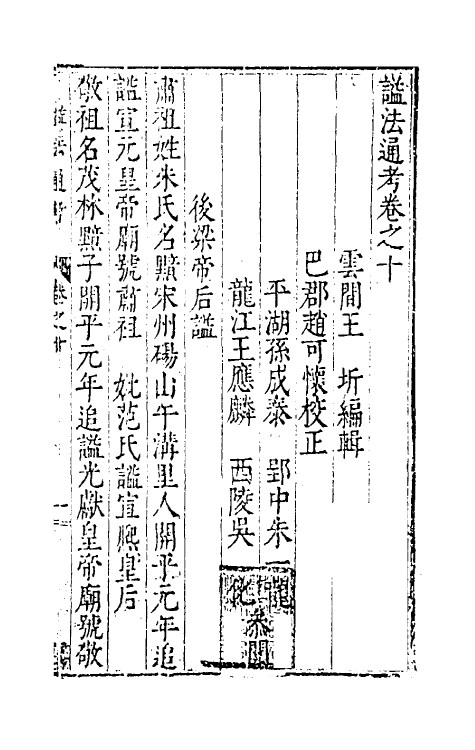 謚法通考卷之十
雲間王　圻編輯
巴郡趙可懷校正
平湖孫成泰　郢中朱一龍
龍江王應麟　西陵吳化　參閱
後梁帝后謚
肅祖姓朱氏名黯宋州碭山午溝里人開平元年追
謚宣元皇帝廟號肅祖　妣范氏謚宣僖皇后
敬祖名茂林黯子開平元年追謚光獻皇帝廟號敬
謚法通考　卷之十　一